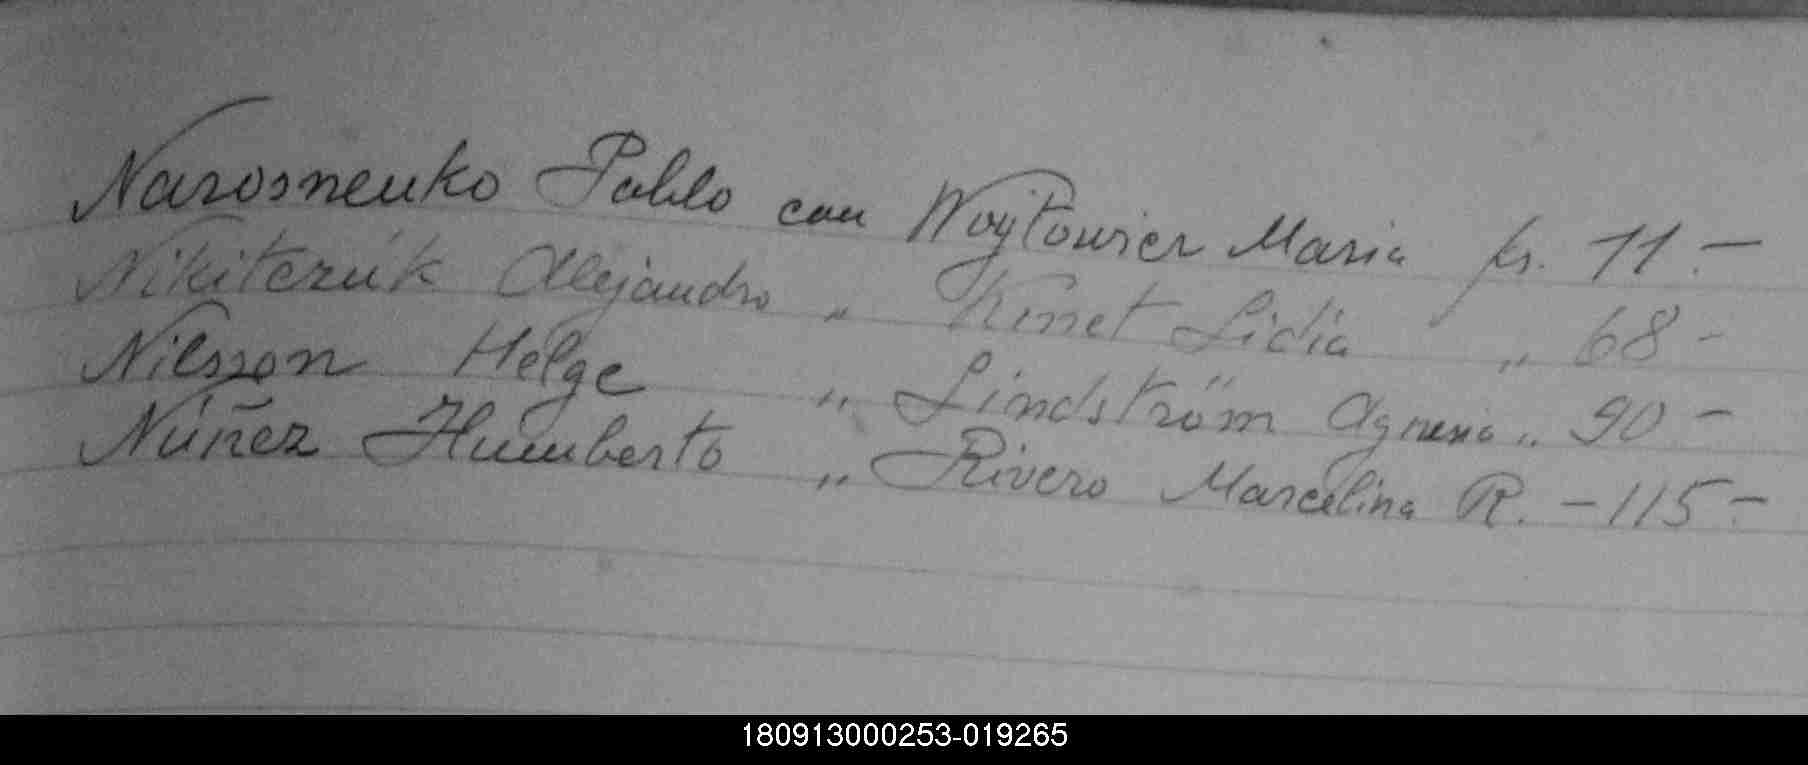 Narosnenko Pablo con Woytowier Maria fs. 11.-
Nikitczúk Alejandro „ Kinet Lidia „ 68-
Nilsson Helge „ Lindström Agnesia „ 90-
Núñez Humberto „ Rivero Marcelina R. - 115-
180913000253-019265